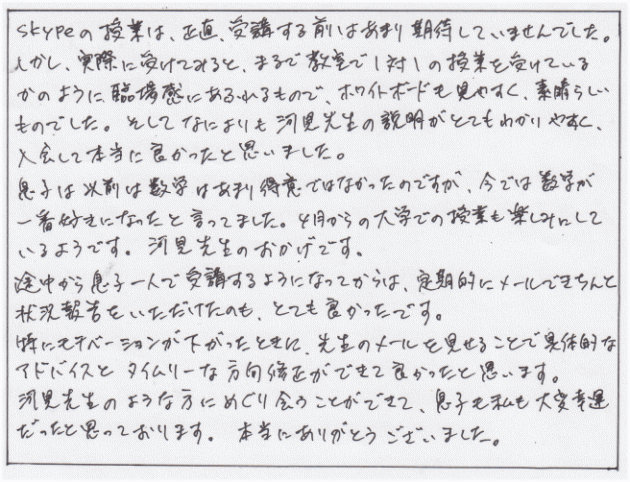 skypeの授業は、正直、受講する前はあまり期待していませんでした。
しかし、実際に受けてみると、まるで教室で1対1の授業を受けている
かのように、臨場感にあふれるもので、ホワイトボードも見やすく、素晴らしい
ものでした。そしてなによりも河見先生の説明がとてもわかりやすく、
入会して本当に良かったと思いました。
息子は以前は数学はあまり得意ではなかったのですが、今では数学が
一番好きになったと言ってました。4月からの大学での授業も楽しみにして
いるようです。河見先生のおかげです。
途中から息子一人で受講するようになってからは、定期的にメールできちんと
状況報告をいただけたのも、とても良かったです。
特にモチベーションが下がったときに、先生のメールを見せることで具体的な
アドバイスとタイムリーな方向修正ができて良かったと思います。
河見先生のような方にめぐり会うことができて、息子も私も大変幸運
だったと思っております。本当にありがとうございました。